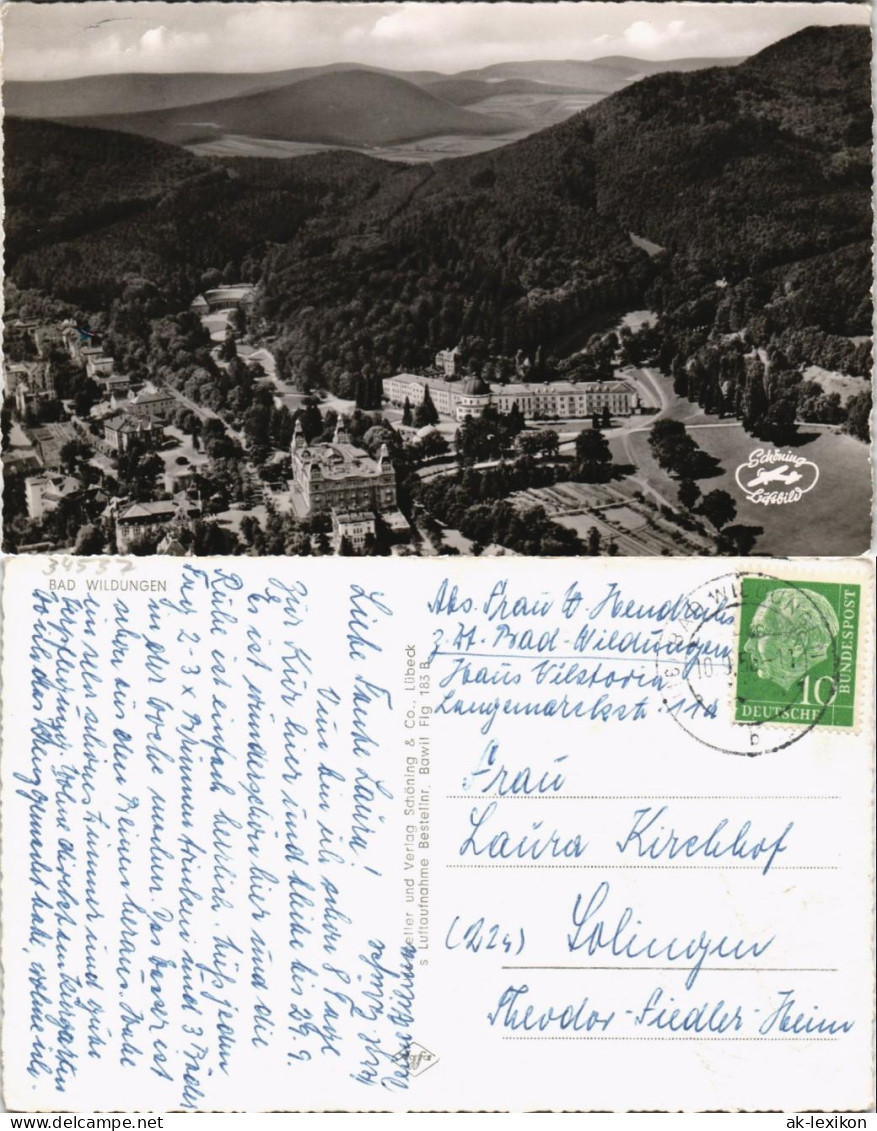 Schöning
Luftbild
34537
BAD WILDUNGEN
Liebe Tante Laura!
Nun bin ich schon 8 Tage
zur Kur hier und bleibe bis 29. 9.
Es ist wunderschön hier und die
Ruhe ist einfach herrlich. Muß jeden
Tag 2-3 x Brunnen trinken und 3 Bäder
in der Woche machen. Das Wasser ist
schon aus den Beinen heraus. Habe
ein sehr schönes Zimmer und gute
Verpflegung. Wohne direkt am Kurgarten
Weil das gemacht habe, wohne ich
Hersteller und Verlag Schöning & Co., Lübeck
s Luftaufnahme Bestellnr. Bawil Flg 183 B
Agfa
Abs. Frau W Hendrichs
z. Zt. Bad-Wildungen
Haus Viktoria
Langemarckstr. 11a
BAD WILDUNGEN
b
10
DEUTSCHE
BUNDESPOST
Frau
Laura Kirchhof
(22a) Solingen
Theodor-Siedler-Heim
ak-lexikon